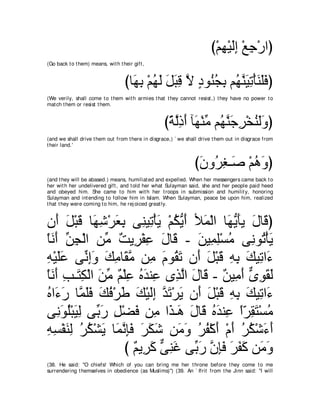 (ارْجِعْ إِلَيْهِمْ)
(Go back to them) means, with their gift,
(فَلَنَأْتِيَنَّهُم بِجُنُودٍ لاَّ قِبَلَ لَهُمْ بِهَا)
(We verily, shall come to them with armies that they cannot resist,) they have no power to
match them or resist them.
(وَلَنُخْرِجَنَّهُم مِّنْهَآ أَذِلَّةً)
(and we shall drive them out from there in disgrace,) `we shall drive them out in disgrace from
their land.'
(وَهُمْ صَـغِرُونَ)
(and they will be abased.) means, humiliated and expelled. When her messengers came back to
her with her undelivered gift, and told her what Sulayman said, she and her people paid heed
and obeyed him. She came to him with her troops in submission and humility, honoring
Sulayman and intending to follow him in Islam. When Sulayman, peace be upon him, realized
that they were coming to him, he rejoiced greatly.
(قَالَ يأَيُّهَا الْمَلأ أَيُّكُمْ يَأْتِينِى بِعَرْشِهَا قَبْلَ أَن
يَأْتُونِى مُسْلِمِينَ - قَالَ عِفْرِيتٌ مِّن الْجِنِّ أَنَاْ
ءَاتِيكَ بِهِ قَبْلَ أَن تَقُومَ مِن مَّقَامِكَ وَإِنِّى عَلَيْهِ
لَقَوِىٌّ أَمِينٌ - قَالَ الَّذِى عِندَهُ عِلْمٌ مِّنَ الْكِتَـبِ أَنَاْ
ءَاتِيكَ بِهِ قَبْلَ أَن يَرْتَدَّ إِلَيْكَ طَرْفُكَ فَلَمَّا رَءَاهُ
مُسْتَقِرّاً عِندَهُ قَالَ هَـذَا مِن فَضْلِ رَبِّى لِيَبْلُوَنِى
أَءَشْكُرُ أَمْ أَكْفُرُ وَمَن شَكَرَ فَإِنَّمَا يَشْكُرُ لِنَفْسِهِ
وَمَن كَفَرَ فَإِنَّ رَبِّى غَنِىٌّ كَرِيمٌ )
(38. He said: "O chiefs! Which of you can bring me her throne before they come to me
surrendering themselves in obedience (as Muslims)'') (39. An `Ifrit from the Jinn said: "I will